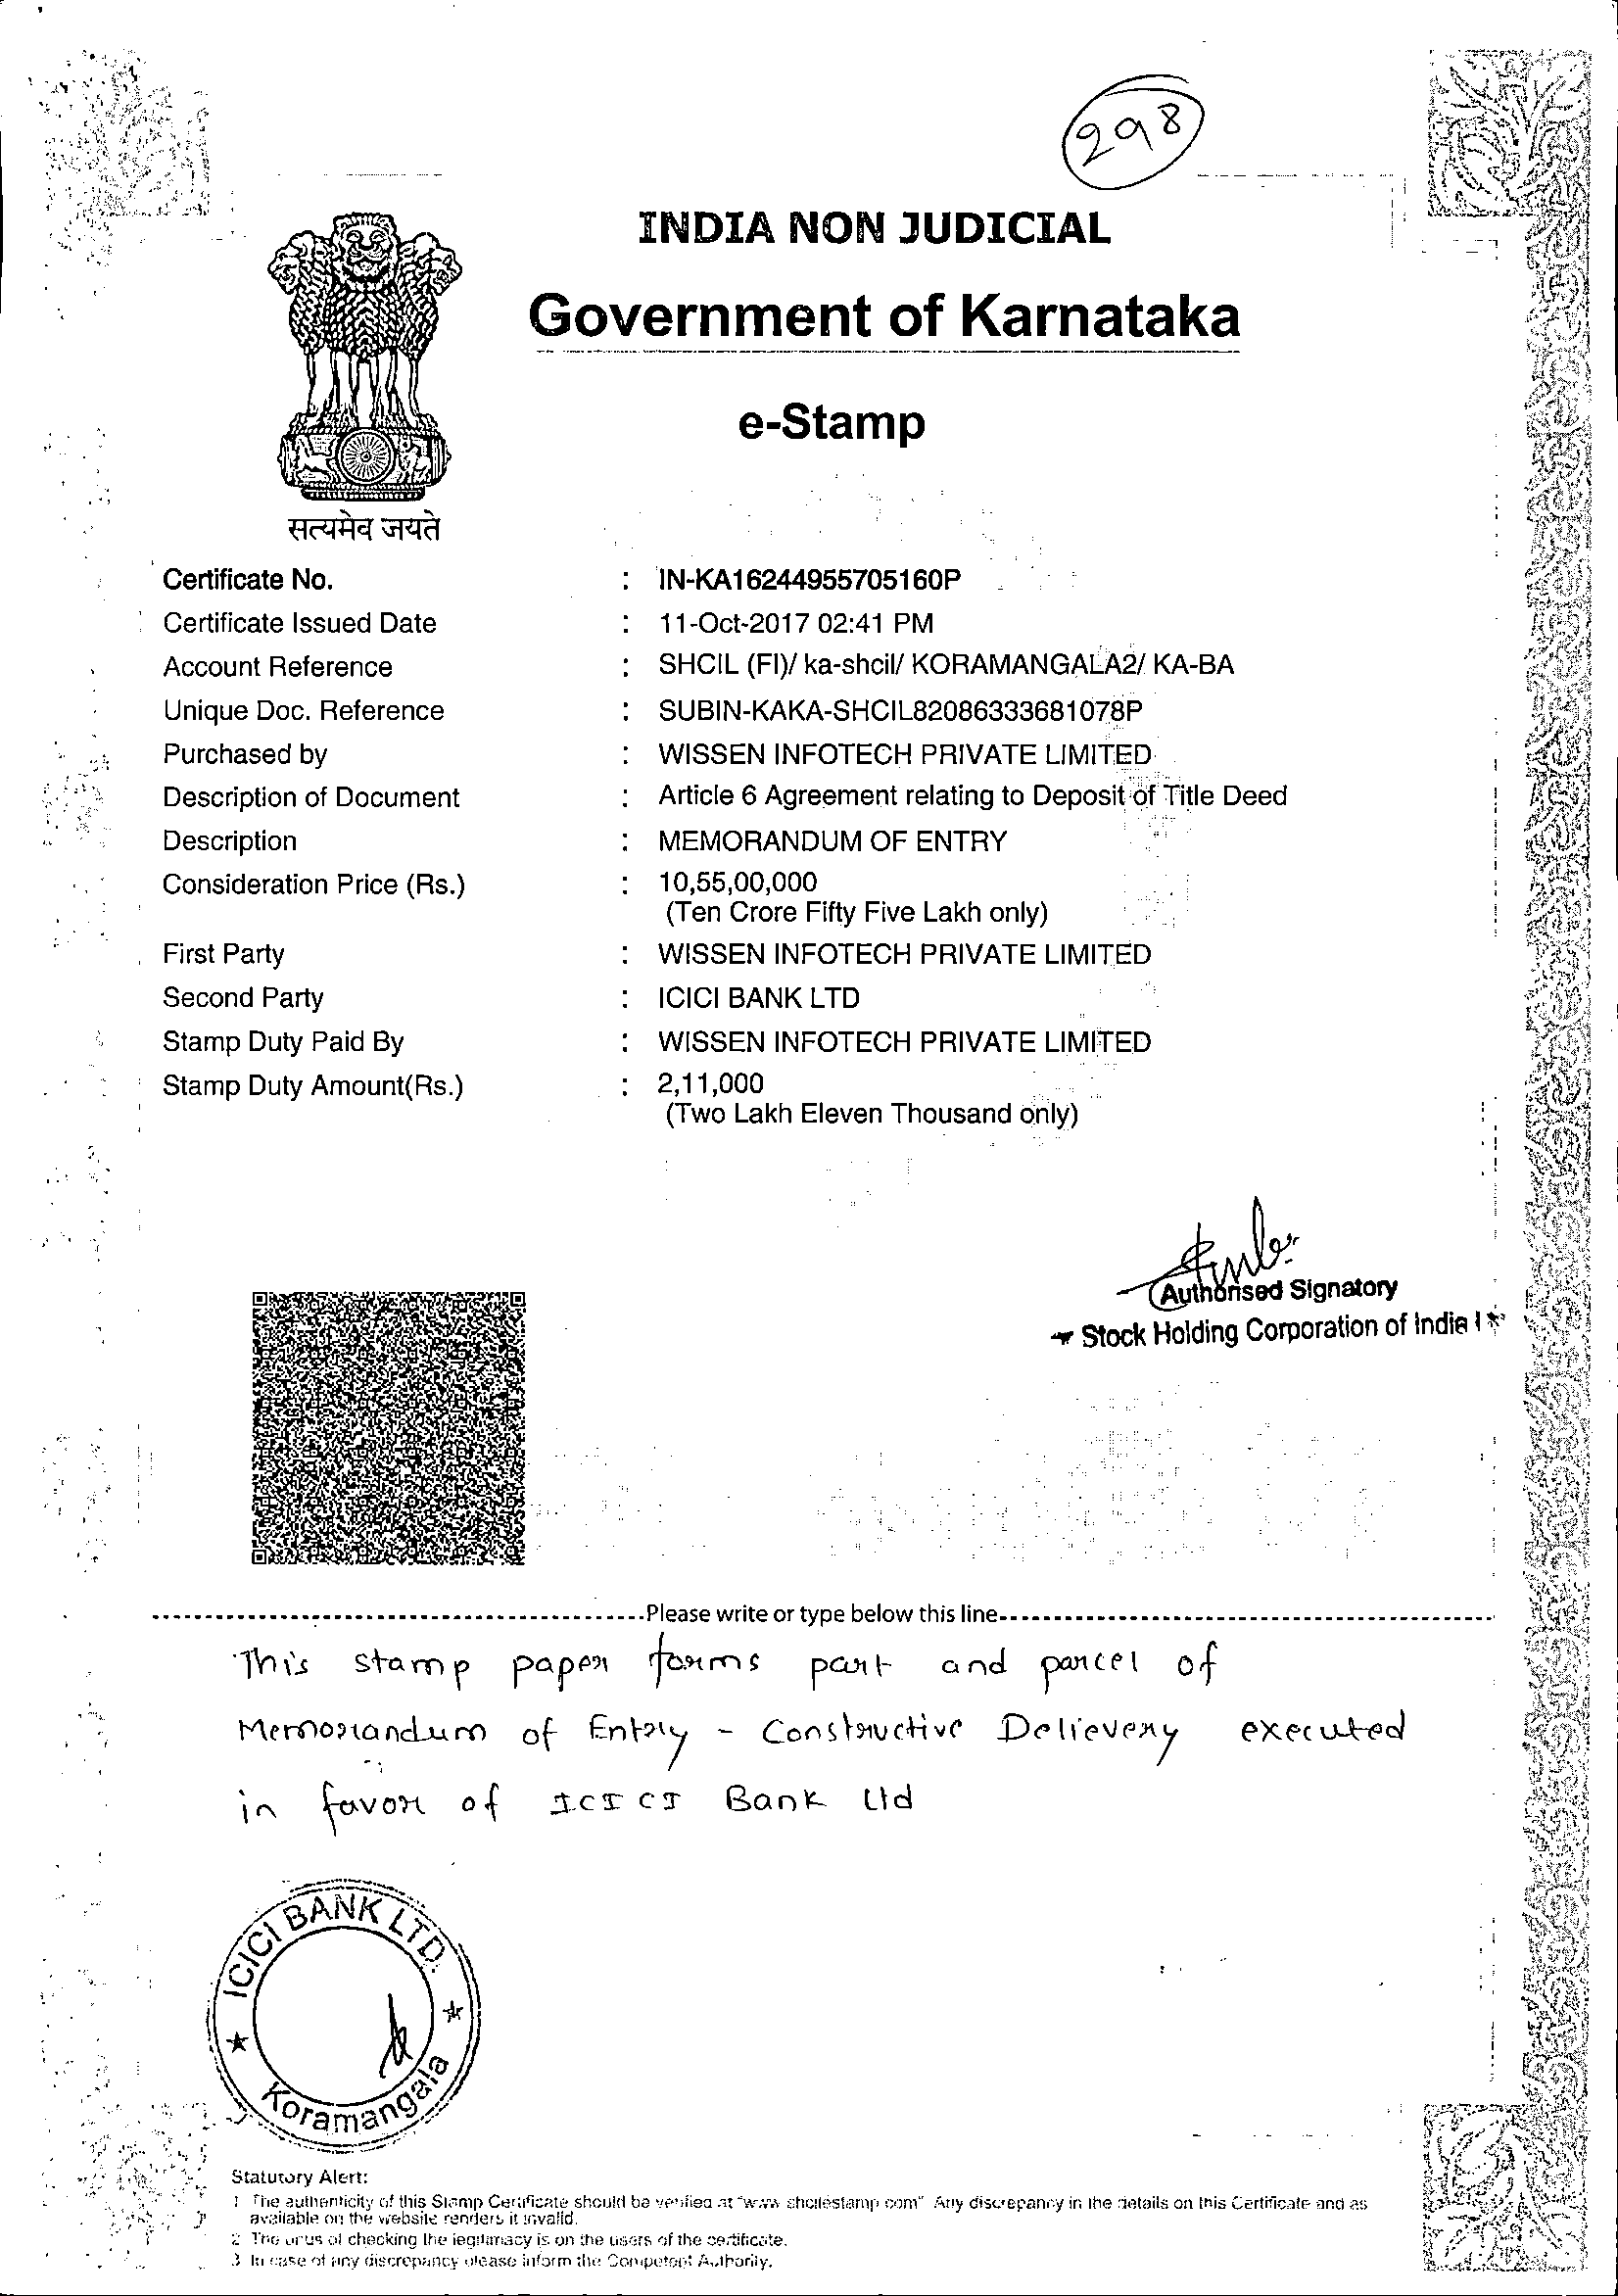 298
INDIA NON JUDICIAL
Government of Karnataka
e-Stamp
सत्यमेव जयते
Certificate No. : IN-KA16244955705160P
Certificate Issued Date : 11-Oct-2017 02:41 PM
Account Reference : SHCIL (FI)/ ka-shcil/ KORAMANGALA2/ KA-BA
Unique Doc. Reference : SUBIN-KAKA-SHCIL82086333681078P
Purchased by : WISSEN INFOTECH PRIVATE LIMITED
Description of Document : Article 6 Agreement relating to Deposit of Title Deed
Description : MEMORANDUM OF ENTRY
Consideration Price (Rs.) : 10,55,00,000
(Ten Crore Fifty Five Lakh only)
First Party : WISSEN INFOTECH PRIVATE LIMITED
Second Party : ICICI BANK LTD
Stamp Duty Paid By : WISSEN INFOTECH PRIVATE LIMITED
Stamp Duty Amount(Rs.) : 2,11,000
(Two Lakh Eleven Thousand only)
Authorised Signatory
Stock Holding Corporation of India
Please write or type below this line
This stamp paper forms part and parcel of
Memorandum of Entry - Constructive Delievery executed
in favor of ICICI Bank Ltd
ICICI BANK LTD.
Koramangala
Statutory Alert:
1 The authenticity of this Stamp Certificate should be verified at "www.shcilestamp.com" Any discrepancy in the details on this Certificate and as
available on the website renders it invalid.
2 The onus of checking the legitimacy is on the users of the certificate.
3 In case of any discrepancy please inform the Competent Authority.